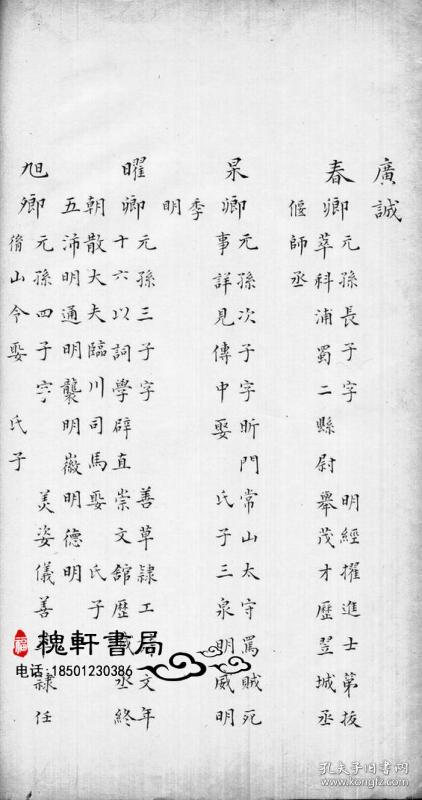 廣誠
春卿
元孫長子字 明經擢進士第拔
萃科浦蜀二縣尉 舉茂才歷翌城丞
偃師丞
杲卿
元孫次子字昕門常山太守罵賊死
事詳見傳中娶 氏子三泉明威明
季明
曜卿
元孫三子字 善草隸工 文年
十六以詞學辟直崇文館歷 丞終
朝散大夫臨川司馬娶 氏子
五沛明通明襲明徽明德明
旭卿
元孫四子字 美姿儀善 隸任
脩山令娶 氏子
槐軒書局
电话:18501230386
孔夫子旧书网
www.kongfz.com